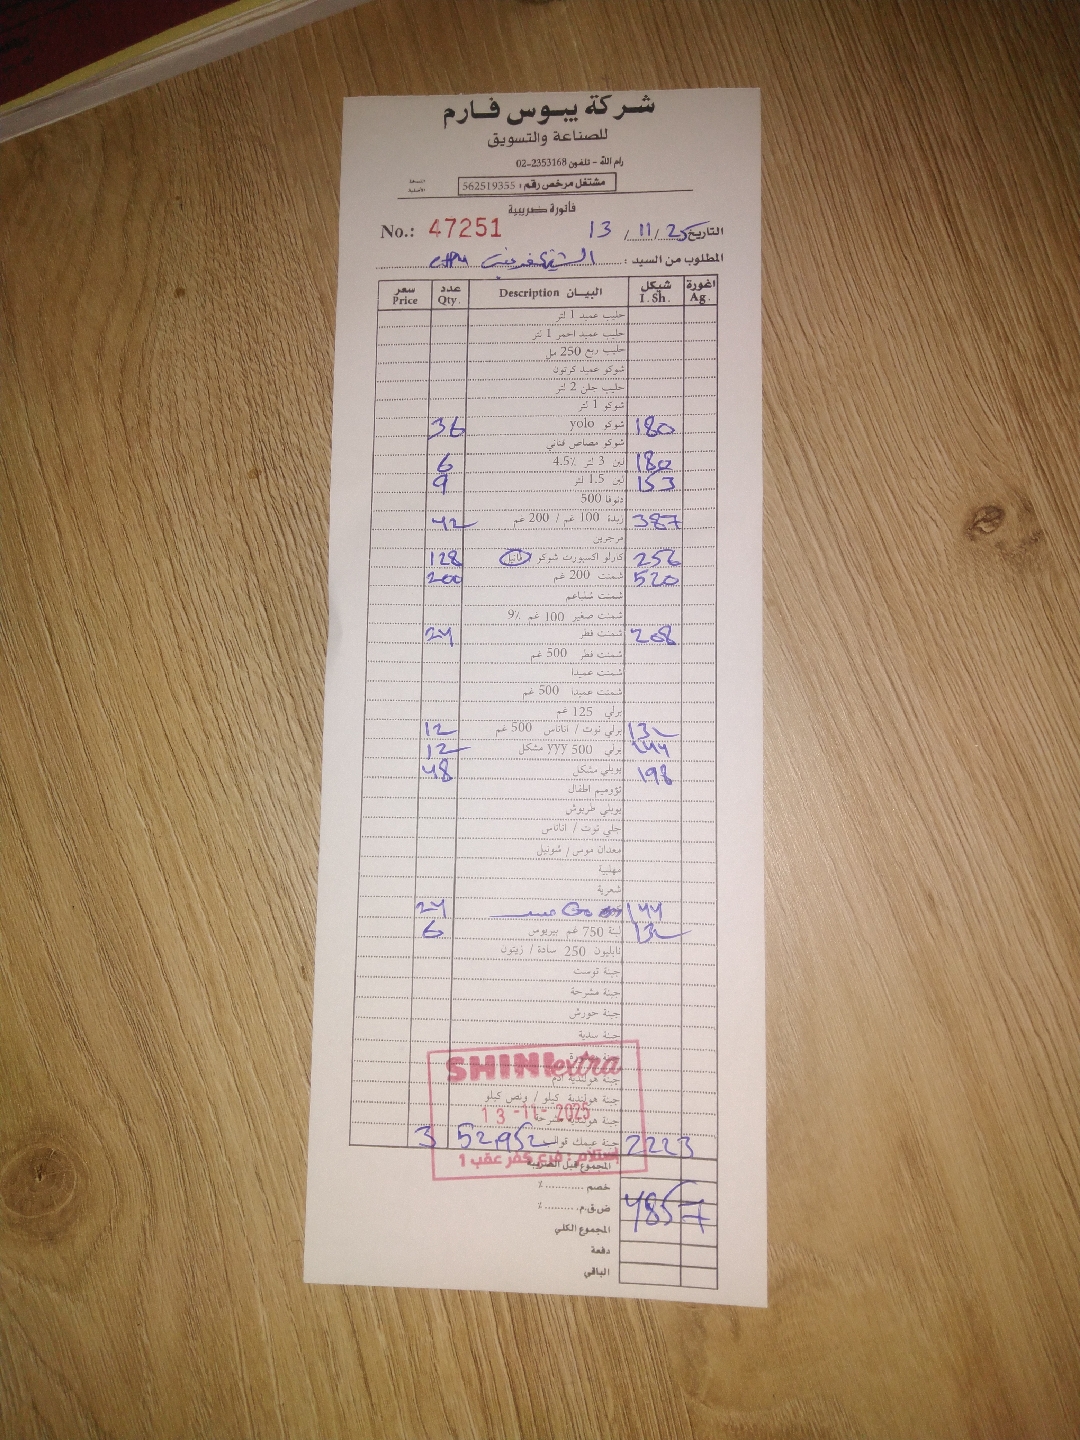 شركة يبوس فارم
للصناعة والتسويق
رام الله - تلفون 02-2353168
مشتغل مرخص رقم: 562519355
النسخة الأصلية
فاتورة ضريبية
No.: 47251 التاريخ 13 / 11 / 25
المطلوب من السيد:
سعر Price عدد Qty. البيان Description شيكل I.Sh. اغورة Ag.
حليب عميد 1 لتر
حليب عميد احمر 1 لتر
حليب ربع 250 مل
شوكو عميد كرتون
حليب جلن 2 لتر
شوكو 1 لتر
36 شوكو yolo 180
شوكو مصاص فناني
6 لبن 3 لتر 4.5٪ 180
9 لبن 1.5 لتر 153
دنوفا 500
42 زبدة 100 غم / 200 غم 387
مرجرين
128 كارلو اكسبورت شوكو فانيلا 256
200 شمنت 200 غم 520
شمنت شناعم
شمنت صغير 100 غم 9٪
24 شمنت فطر 208
شمنت فطر 500 غم
شمنت عميدا
شمنت عميدا 500 غم
برلي 125 غم
12 برلي توت / اناناس 500 غم 132
12 برلي 500 yyy مشكل 144
48 يوبلي مشكل 198
يوبلي طربوش
جلي توت / اناناس
مهلبية
شعرية
24 Go 144
6 لبنة 750 غم بيريوس 132
نابليون 250 سادة / زيتون
جبنة توست
جبنة مشرحة
جبنة حورش
جبنة سدية
SHINI extra
جبنة هولندية ادم
جبنة هولندية كيلو / ونص كيلو
جبنة هولندية مشرحة
13-11-2025
3 جبنة عيمك قوالب 52,952 2223
إستلام: فرع كفر عقب 1
المجموع قبل الضريبة
خصم ............ ٪
ض.ق.م. ......... ٪ 4857
المجموع الكلي
دفعة
الباقي